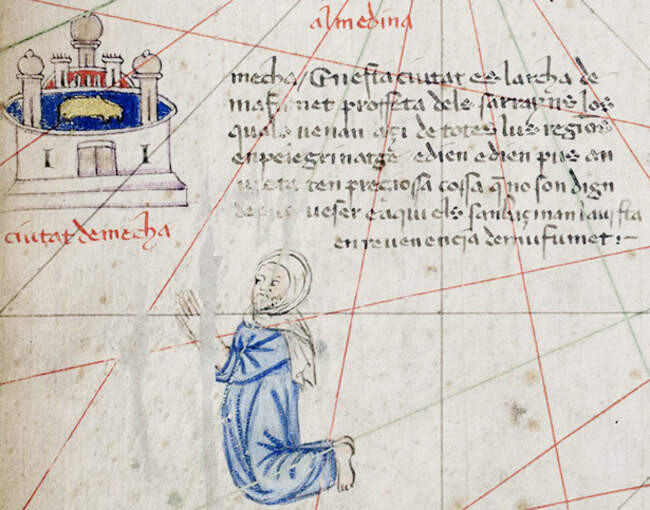 almedina
mecha / En esta ciutat es larcha de
proffeta dels sarrayns los
quals venan açi de totes lus regions
en pelegrinatge e dien e dien pus an
ten preçiossa cossa q no son dign
de pus veser e aqui els la vista
en reverencia de mufumet :~
ciutat de mecha